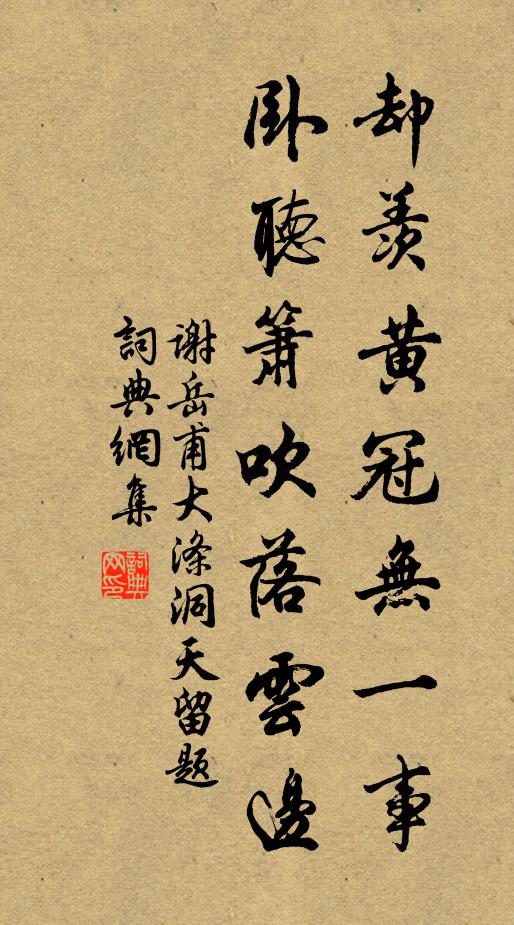 却羨黃冠無一事
臥聽簫吹落雲邊
谢岳甫大滌洞天留题
詞典網集
詞典網印